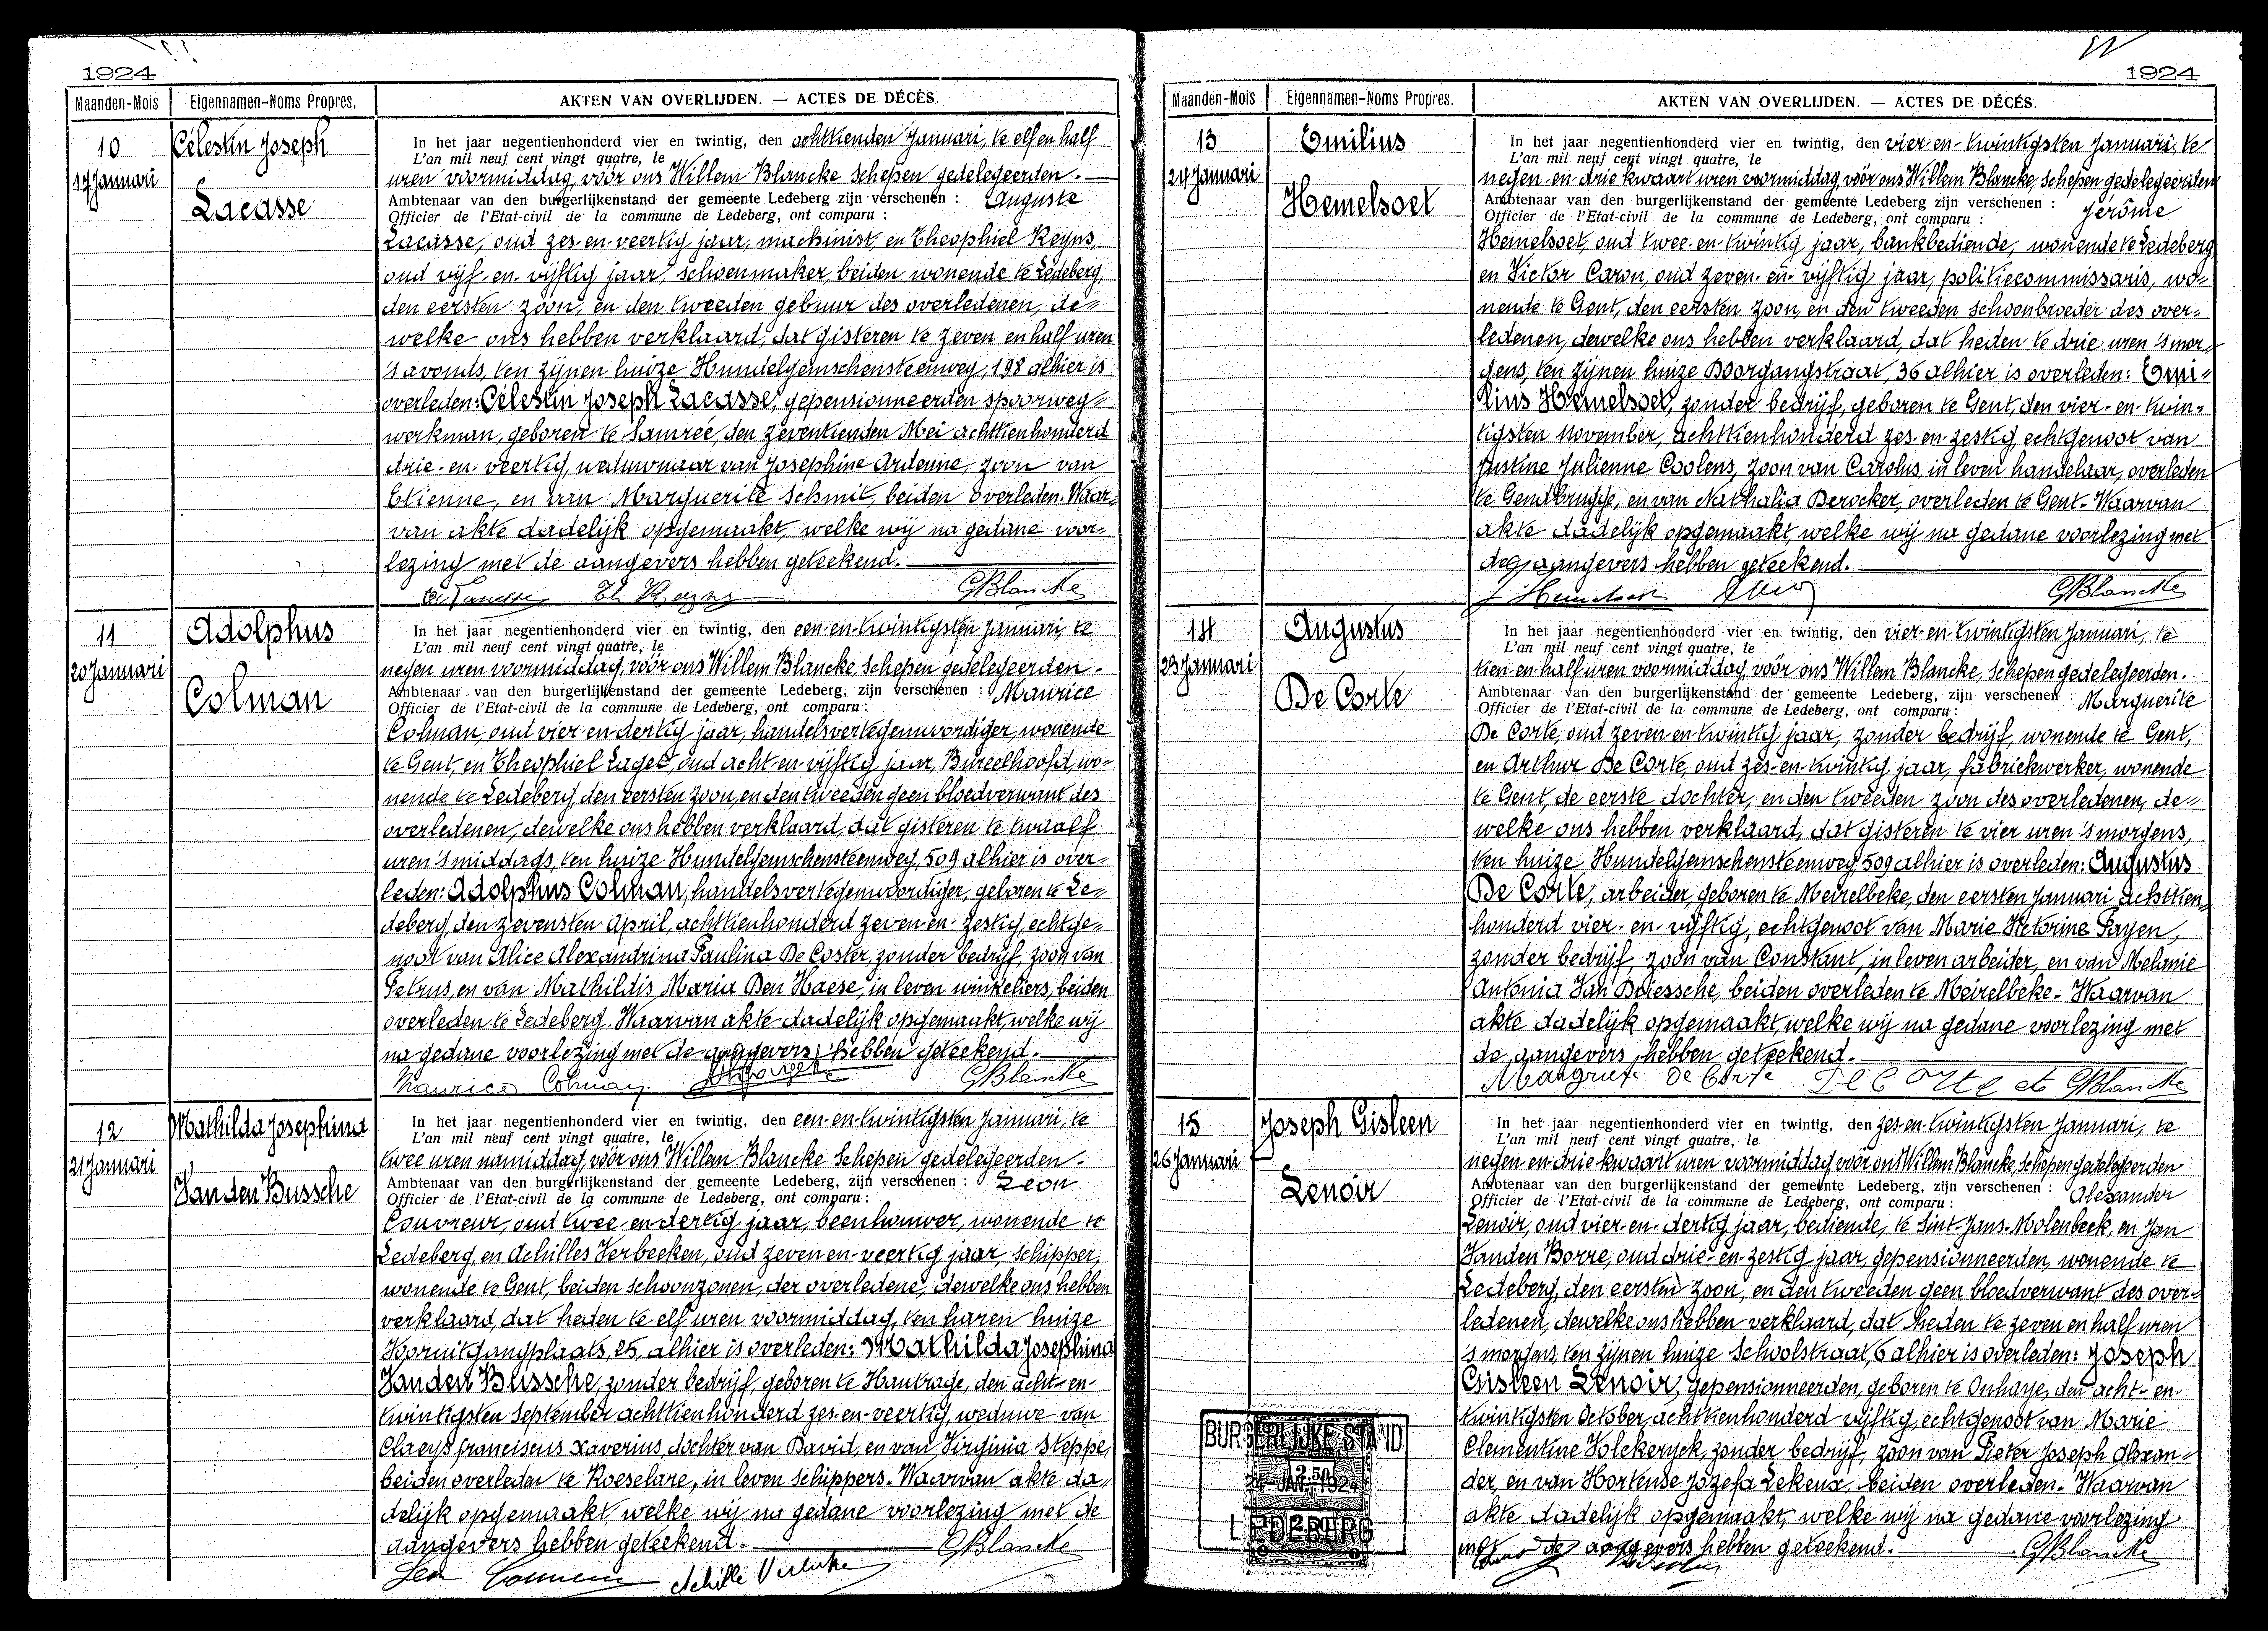 1924
Maanden-Mois Eigennamen-Noms Propres. AKTEN VAN OVERLIJDEN. — ACTES DE DÉCÈS.
10
17 Januari
Célestin Joseph
Lacasse
In het jaar negentienhonderd vier en twintig, den achttienden Januari, te elf en half
L'an mil neuf cent vingt quatre, le
uren voormiddag, vóór ons Willem Blancke Schepen gedelegeerden.
Ambtenaar van den burgerlijkenstand der gemeente Ledeberg zijn verschenen : Auguste
Officier de l'Etat-civil de la commune de Ledeberg, ont comparu :
Lacasse, oud zes-en-veertig jaar, machinist, en Theophiel Reyns,
oud vijf-en-vijftig jaar, schoenmaker, beiden wonende te Ledeberg,
den eersten zoon, en den tweeden gebuur des overledenen, de=
welke ons hebben verklaard, dat gisteren te zeven en half uren
's avonds, ten zijnen huize Hundelgemschensteenweg, 198 alhier is
overleden: Célestin Joseph Lacasse, gepensionneerden spoorweg=
werkman, geboren te Samrée, den zeventienden Mei achttienhonderd
drie-en-veertig, weduwnaar van Josephine Ardenne, zoon van
Etienne, en van Marguerite Schmit, beiden overleden. Waar=
van akte dadelijk opgemaakt, welke wij na gedane voor=
lezing met de aangevers hebben geteekend.
Th Reyns GBlancke
11
20 Januari
Adolphus
Colman
In het jaar negentienhonderd vier en twintig, den een-en-twintigsten Januari, te
L'an mil neuf cent vingt quatre, le
negen uren voormiddag, vóór ons Willem Blancke, Schepen gedelegeerden.
Ambtenaar van den burgerlijkenstand der gemeente Ledeberg, zijn verschenen : Maurice
Officier de l'Etat-civil de la commune de Ledeberg, ont comparu :
Colman, oud vier-en-dertig jaar, handelsvertegenwoordiger, wonende
te Gent, en Theophiel Laget, oud acht-en-vijftig jaar, Bureelhoofd, wo=
nende te Ledeberg, den eersten zoon, en den tweeden geen bloedverwant des
overledenen, dewelke ons hebben verklaard, dat gisteren te twaalf
uren 's middags, ten huize Hundelgemschensteenweg, 509 alhier is over=
leden: Adolphus Colman, handelsvertegenwoordiger, geboren te Le=
deberg, den zevensten April, achttienhonderd zeven-en-zestig, echtge=
noot van Alice Alexandrina Paulina De Coster, zonder bedrijf, zoon van
Petrus, en van Mathildis Maria Den Haese, in leven winkeliers, beiden
overleden te Ledeberg. Waarvan akte dadelijk opgemaakt, welke wij
na gedane voorlezing met de aangevers hebben geteekend.
Maurice Colman GBlancke
12
21 Januari
Mathilda Josephina
Van den Bussche
In het jaar negentienhonderd vier en twintig, den een-en-twintigsten Januari, te
L'an mil neuf cent vingt quatre, le
twee uren namiddag, vóór ons Willem Blancke Schepen gedelegeerden.
Ambtenaar van den burgerlijkenstand der gemeente Ledeberg, zijn verschenen : Leon
Officier de l'Etat-civil de la commune de Ledeberg, ont comparu :
Couvreur, oud twee-en-dertig jaar, beenhouwer, wonende te
Ledeberg, en Achilles Verbeeken, oud zeven-en-veertig jaar, schipper,
wonende te Gent, beiden schoonzonen, der overledene, dewelke ons hebben
verklaard, dat heden te elf uren voormiddag, ten haren huize
Vooruitgangplaats, 25, alhier is overleden: Mathilda Josephina
Vanden Bussche, zonder bedrijf, geboren te Hautrage, den acht-en-
twintigsten September achttienhonderd zes-en-veertig, weduwe van
Claeys Franciscus Xaverius, dochter van David, en van Virginia Steppe,
beiden overleden te Roeselare, in leven schippers. Waarvan akte da=
delijk opgemaakt, welke wij na gedane voorlezing met de
aangevers hebben geteekend. GBlancke
Leon Couvreur Achille Verbeke
1924
Maanden-Mois Eigennamen-Noms Propres. AKTEN VAN OVERLIJDEN. — ACTES DE DÉCÉS.
13
24 Januari
Emilius
Hemelsoet
In het jaar negentienhonderd vier en twintig, den vier-en-twintigsten Januari, te
L'an mil neuf cent vingt quatre, le
negen-en-drie kwaart uren voormiddag, vóór ons Willem Blancke, Schepen gedelegeerden
Ambtenaar van den burgerlijkenstand der gemeente Ledeberg zijn verschenen : Jérôme
Officier de l'Etat-civil de la commune de Ledeberg, ont comparu :
Hemelsoet, oud twee-en-twintig jaar, bankbediende, wonende te Ledeberg,
en Victor Caron, oud zeven-en-vijftig jaar, politiecommissaris, wo=
nende te Gent, den eersten zoon, en den tweeden schoonbroeder des over=
ledenen, dewelke ons hebben verklaard, dat heden te drie uren 's mor=
gens, ten zijnen huize Doorgangstraat, 36 alhier is overleden: Emi=
lius Hemelsoet, zonder bedrijf, geboren te Gent, den vier-en-twin=
tigsten November, achttienhonderd zes-en-zestig, echtgenoot van
Justine Julienne Coolens, zoon van Carolus, in leven handelaar, overleden
te Gendbrugge, en van Nathalia Derocker, overleden te Gent. Waarvan
akte dadelijk opgemaakt, welke wij na gedane voorlezing met
de aangevers hebben geteekend.
J Hemelsoet GBlancke
14
23 Januari
Augustus
De Corte
In het jaar negentienhonderd vier en twintig, den vier-en-twintigsten Januari, te
L'an mil neuf cent vingt quatre, le
tien-en-half uren voormiddag, vóór ons Willem Blancke, Schepen gedelegeerden.
Ambtenaar van den burgerlijkenstand der gemeente Ledeberg, zijn verschenen : Marguerite
Officier de l'Etat-civil de la commune de Ledeberg, ont comparu :
De Corte, oud zeven-en-twintig jaar, zonder bedrijf, wonende te Gent,
en Arthur De Corte, oud zes-en-twintig jaar, fabriekwerker, wonende
te Gent, de eerste dochter, en den tweeden zoon des overledenen, de=
welke ons hebben verklaard, dat gisteren te vier uren 's morgens,
ten huize Hundelgemschensteenweg 509 alhier is overleden: Augustus
De Corte, arbeider, geboren te Meirelbeke, den eersten Januari achttien
honderd vier-en-vijftig, echtgenoot van Marie Victorine Payen,
zonder bedrijf, zoon van Constant, in leven arbeider, en van Melanie
Antonia Van Driessche, beiden overleden te Meirelbeke. Waarvan
akte dadelijk opgemaakt, welke wij na gedane voorlezing met
de aangevers, hebben geteekend.
Mangriete De Corte De Corte GBlancke
15
26 Januari
Joseph Gisleen
Lenoir
In het jaar negentienhonderd vier en twintig, den zes-en-twintigsten Januari, te
L'an mil neuf cent vingt quatre, le
negen en-drie-kwaart uren voormiddag vóór ons Willem Blancke, Schepen gedelegeerden
Ambtenaar van den burgerlijkenstand der gemeente Ledeberg, zijn verschenen : Alexander
Officier de l'Etat-civil de la commune de Ledeberg, ont comparu :
Lenoir, oud vier-en-dertig jaar, bediende, te Sint-Jans-Molenbeek, en Jan
Vanden Borre, oud drie-en-zestig jaar, gepensionneerden, wonende te
Ledeberg, den eersten zoon, en den tweeden geen bloedverwant des over=
ledenen, dewelke ons hebben verklaard, dat heden te zeven en half uren
's morgens, ten zijnen huize Schoolstraat, 6 alhier is overleden: Joseph
Gisleen Lenoir, gepensionneerden, geboren te Onhaye, den acht-en-
twintigsten October, achttienhonderd vijftig, echtgenoot van Marie
Clementine Volckeryck, zonder bedrijf, zoon van Pieter Joseph Alexan=
der, en van Hortense Jozefa Lekeux, beiden overleden. Waarvan
akte dadelijk opgemaakt, welke wij na gedane voorlezing
met de aangevers hebben geteekend. GBlancke
BURGERLIJKE STAND
2.50
24 JAN. 1924
LEDEBERG